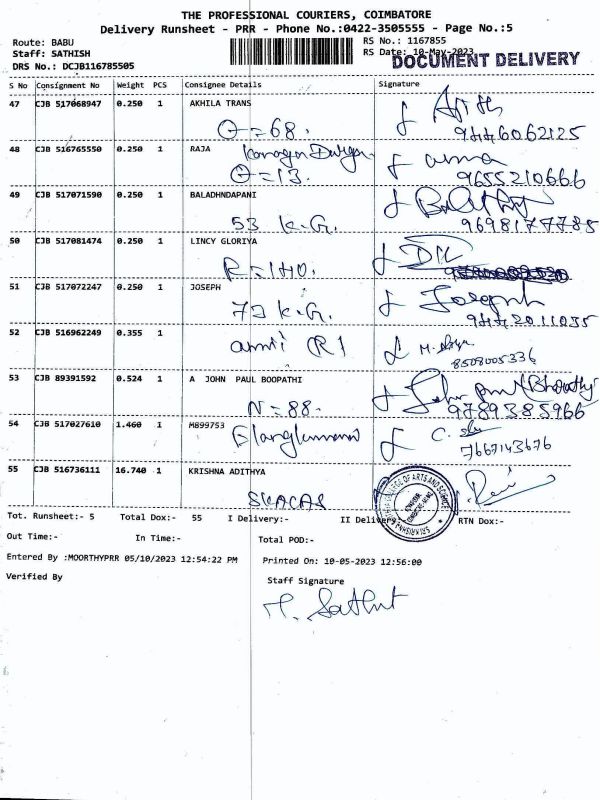 THE PROFESSIONAL COURIERS, COIMBATORE
Delivery Runsheet - PRR - Phone No.:0422-3505555 - Page No.:5
Route: BABU RS No.: 1167855
Staff: SATHISH RS Date: 10-May-2023
DOCUMENT DELIVERY
DRS No.: DCJB116785505
S No Consignment No Weight PCS Consignee Details Signature
47 CJB 517068947 0.250 1 AKHILA TRANS
O=68. 9446062125
48 CJB 516765550 0.250 1 RAJA
O=13. 9655210666
49 CJB 517071590 0.250 1 BALADHNDAPANI
53 K.G. 9698177785
50 CJB 517081474 0.250 1 LINCY GLORIYA
R=140.
51 CJB 517072247 0.250 1 JOSEPH Joseph
K.G. 9442011035
52 CJB 516962249 0.355 1
8508005336
53 CJB 89391592 0.524 1 A JOHN PAUL BOOPATHI
N=88. 9789385966
54 CJB 517027610 1.460 1 M899753
7667143676
55 CJB 516736111 16.740 1 KRISHNA ADITHYA
SKACAS
COLLEGE OF ARTS AND SCIENCE
Tot. Runsheet:- 5 Total Dox:- 55 I Delivery:- II Delivery- RTN Dox:-
Out Time:- In Time:- Total POD:-
Entered By :MOORTHYPRR 05/10/2023 12:54:22 PM Printed On: 10-05-2023 12:56:00
Verified By Staff Signature